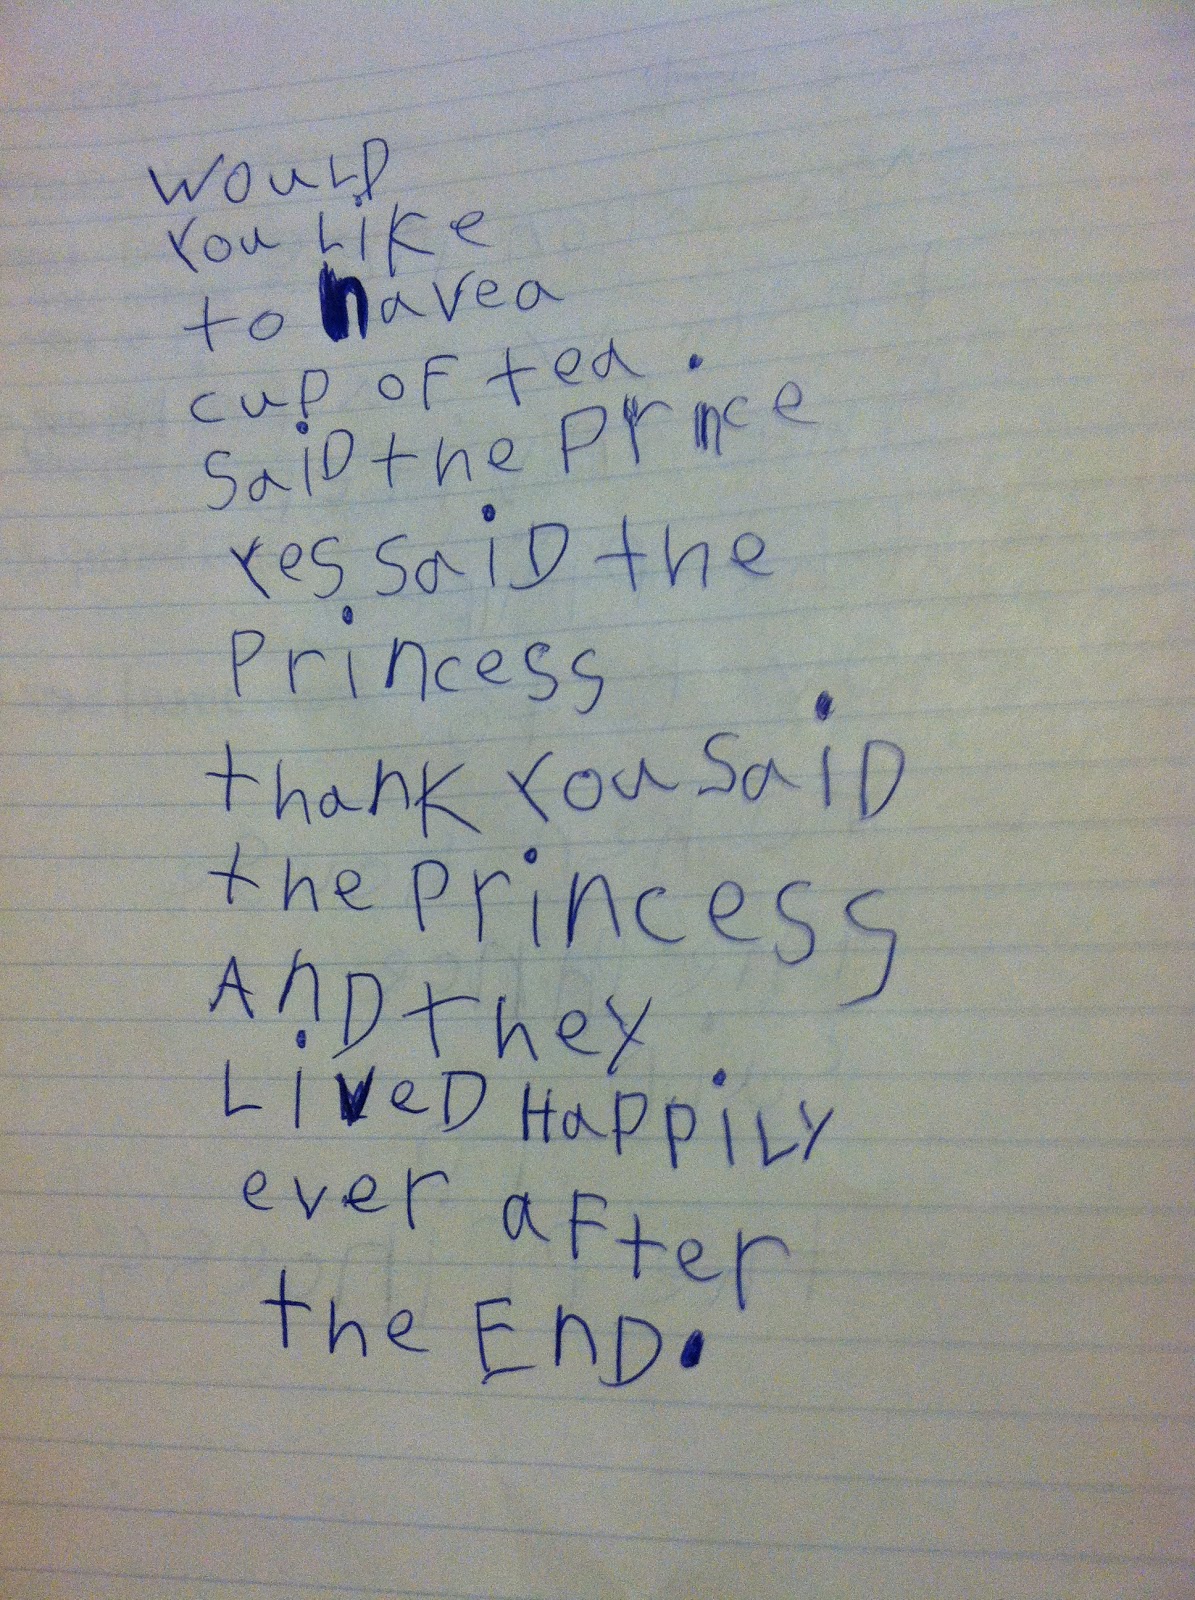 WOULD
You Like
to havea
cup oF tea.
SaiD the Prnce
Yes SaiD the
Princess
thank You SaiD
the Princess
AnD they
LiveD HaPPiLY
ever aFter
the EnD.